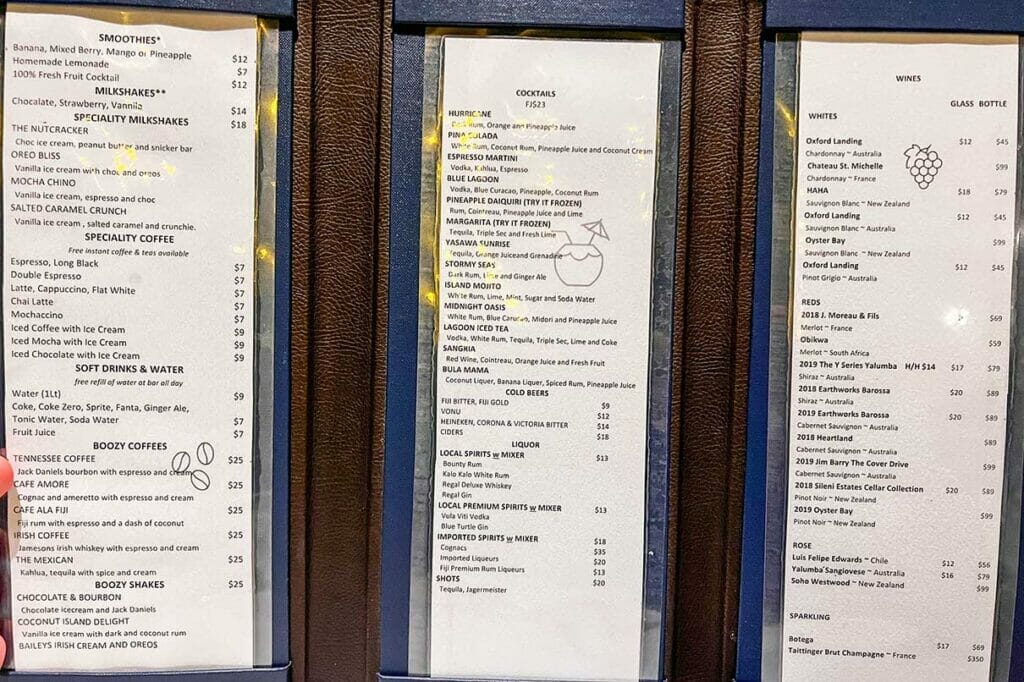 SMOOTHIES*
Banana, Mixed Berry, Mango or Pineapple $12
Homemade Lemonade $7
100% Fresh Fruit Cocktail $12
MILKSHAKES**
Chocolate, Strawberry, Vannila $14
SPECIALITY MILKSHAKES $18
THE NUTCRACKER
Choc ice cream, peanut butter and snicker bar
OREO BLISS
Vanilla ice cream with choc and oreos
MOCHA CHINO
Vanilla ice cream, espresso and choc
SALTED CARAMEL CRUNCH
Vanilla ice cream , salted caramel and crunchie.
SPECIALITY COFFEE
Free instant coffee & teas available
Espresso, Long Black $7
Double Espresso $7
Latte, Cappuccino, Flat White $7
Chai Latte $7
Mochaccino $7
Iced Coffee with Ice Cream $9
Iced Mocha with Ice Cream $9
Iced Chocolate with Ice Cream $9
SOFT DRINKS & WATER
free refill of water at bar all day
Water (1Lt) $9
Coke, Coke Zero, Sprite, Fanta, Ginger Ale,
Tonic Water, Soda Water $7
Fruit Juice $7
BOOZY COFFEES
TENNESSEE COFFEE $25
Jack Daniels bourbon with espresso and cream
CAFE AMORE $25
Cognac and ameretto with espresso and cream
CAFE ALA FIJI $25
Fiji rum with espresso and a dash of coconut
IRISH COFFEE $25
Jamesons irish whiskey with espresso and cream
THE MEXICAN $25
Kahlua, tequila with spice and cream
BOOZY SHAKES $25
CHOCOLATE & BOURBON
Chocolate icecream and Jack Daniels
COCONUT ISLAND DELIGHT
Vanilla ice cream with dark and coconut rum
BAILEYS IRISH CREAM AND OREOS
COCKTAILS
FJ$23
HURRICANE
Dark Rum, Orange and Pineapple Juice
PINA COLADA
White Rum, Coconut Rum, Pineapple Juice and Coconut Cream
ESPRESSO MARTINI
Vodka, Kahlua, Espresso
BLUE LAGOON
Vodka, Blue Curacao, Pineapple, Coconut Rum
PINEAPPLE DAIQUIRI (TRY IT FROZEN)
Rum, Cointreau, Pineapple Juice and Lime
MARGARITA (TRY IT FROZEN)
Tequila, Triple Sec and Fresh Lime
YASAWA SUNRISE
Tequila, Orange Juiceand Grenadine
STORMY SEAS
Dark Rum, Lime and Ginger Ale
ISLAND MOJITO
White Rum, Lime, Mint, Sugar and Soda Water
MIDNIGHT OASIS
White Rum, Blue Curacao, Midori and Pineapple Juice
LAGOON ICED TEA
Vodka, White Rum, Tequila, Triple Sec, Lime and Coke
SANGRIA
Red Wine, Cointreau, Orange Juice and Fresh Fruit
BULA MAMA
Coconut Liquer, Banana Liquer, Spiced Rum, Pineapple Juice
COLD BEERS
FIJI BITTER, FIJI GOLD $9
VONU $12
HEINEKEN, CORONA & VICTORIA BITTER $14
CIDERS $18
LIQUOR
LOCAL SPIRITS w MIXER $13
Bounty Rum
Kalo Kalo White Rum
Regal Deluxe Whiskey
Regal Gin
LOCAL PREMIUM SPIRITS w MIXER $13
Vula Viti Vodka
Blue Turtle Gin
IMPORTED SPIRITS w MIXER $18
Cognacs $35
Imported Liqueurs $20
Fiji Premium Rum Liqueurs $13
SHOTS $20
Tequila, Jagermeister
WINES
GLASS BOTTLE
WHITES
Oxford Landing $12 $45
Chardonnay ~ Australia
Chateau St. Michelle $99
Chardonnay ~ France
HAHA $18 $79
Sauvignon Blanc ~ New Zealand
Oxford Landing $12 $45
Sauvignon Blanc ~ Australia
Oyster Bay $99
Sauvignon Blanc ~ New Zealand
Oxford Landing $12 $45
Pinot Grigio ~ Australia
REDS
2018 J. Moreau & Fils $69
Merlot ~ France
Obikwa $59
Merlot ~ South Africa
2019 The Y Series Yalumba H/H $14 $17 $79
Shiraz ~ Australia
2018 Earthworks Barossa $20 $89
Shiraz ~ Australia
2019 Earthworks Barossa $20 $89
Cabernet Sauvignon ~ Australia
2018 Heartland $89
Cabernet Sauvignon ~ Australia
2019 Jim Barry The Cover Drive $99
Cabernet Sauvignon ~ Australia
2018 Sileni Estates Cellar Collection $20 $89
Pinot Noir ~ New Zealand
2019 Oyster Bay $99
Pinot Noir ~ New Zealand
ROSE
Luis Felipe Edwards ~ Chile $12 $56
Yalumba Sangiovese ~ Australia $16 $79
Soho Westwood ~ New Zealand $99
SPARKLING
Botega $17 $69
Taittinger Brut Champagne ~ France $350